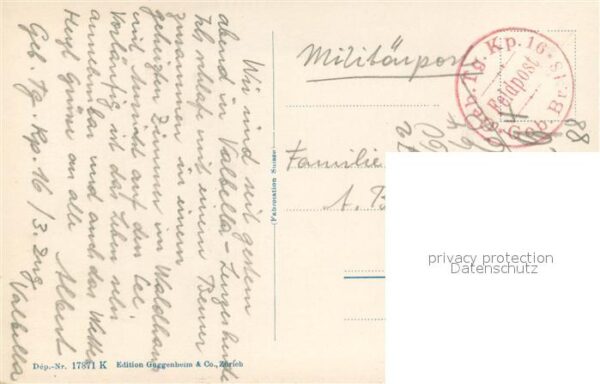 Wir sind seit gestern
abend in Valbella-Lenzerheide
Ich schlafe mit einem
zusammen in einem
geheizten Zimmer im Waldhaus
mit Aussicht auf den See
Vorläufig ist das Leben sehr
annehmbar und auch das Wetter
Herzl. Grüsse an alle Albert
Geb. Tg. Kp. 16 / 3. Zug
Valbella
Militärpost
Familie
A. B
Geb. Tg. Kp. 16
Feldpost
Geb. Br.
88
(Fabrication Suisse)
Dép.-Nr. 17871 K Edition Guggenheim & Co., Zürich
privacy protection
Datenschutz